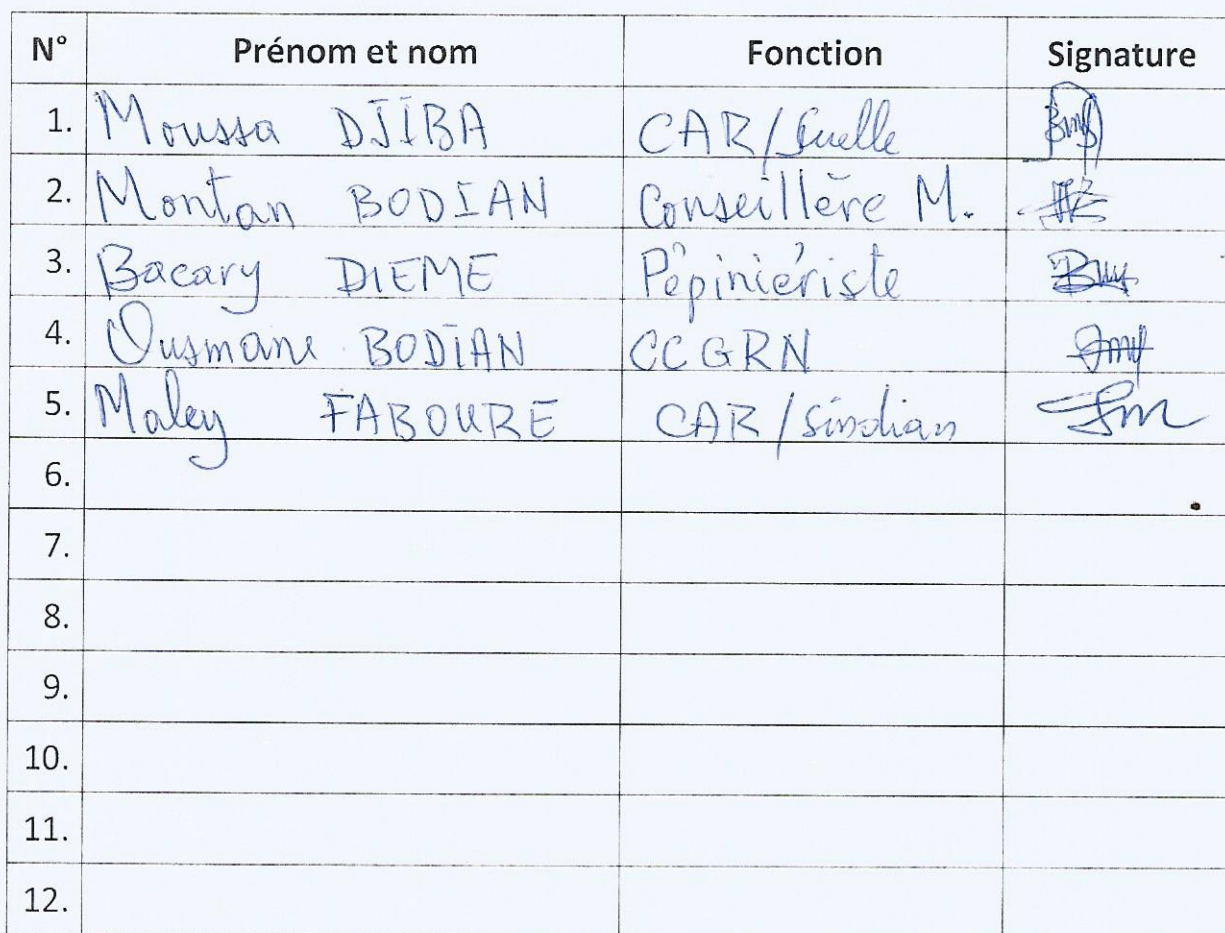 N° Prénom et nom Fonction Signature
1. Moussa DJIBA CAR/Suelle
2. Montan BODIAN Conseillère M.
3. Bacary DIEME Pépiniériste
4. Ousmane BODIAN CCGRN
5. Maley FABOURE CAR/Sindian
6.
7.
8.
9.
10.
11.
12.